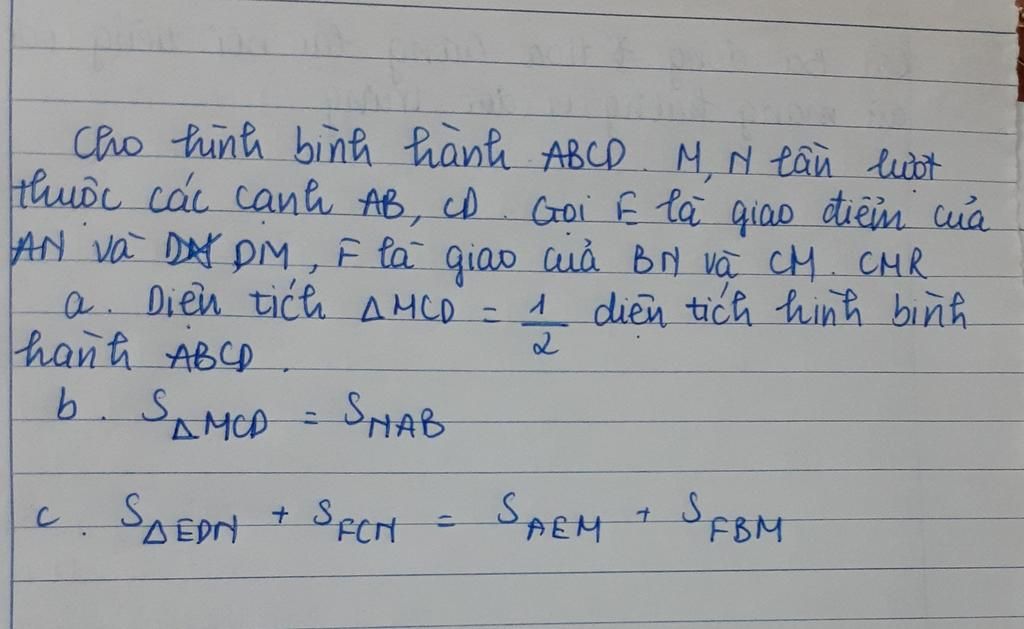 Cho hình bình hành ABCD. M, N lần lượt
thuộc các cạnh AB, CD. Gọi E là giao điểm của
AN và DM, F là giao của BN và CM. CMR
a. Diện tích ΔMCD = 1/2 diện tích hình bình
hành ABCD.
b. S ΔMCD = S NAB
c. S ΔEDN + S FCN = S AEM + S FBM